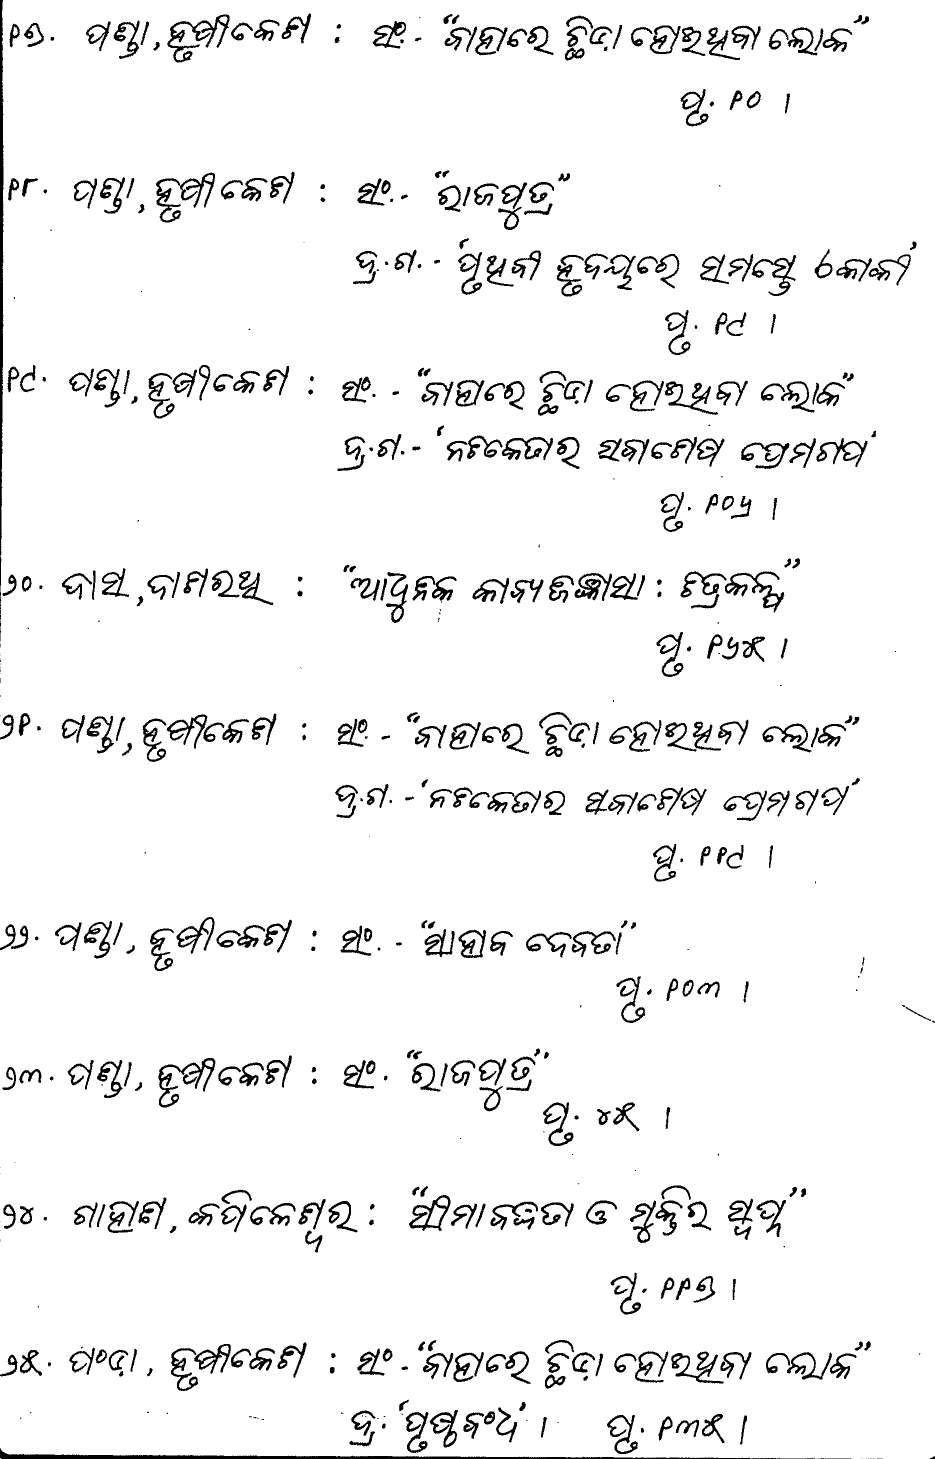 ୧୭. ପଣ୍ଡା, ହୃଷୀକେଶ : ସଂ.- “ବାହାରେ ଛିଡ଼ା ହୋଇଥିବା ଲୋକ”
ପୃ. ୧୦ ।
୧୮. ପଣ୍ଡା, ହୃଷୀକେଶ : ସଂ.- “ରାଜପୁତ୍ର”
ଦ୍ର.ଗ.- ‘ପୃଥିବୀ ହୃଦୟରେ ସମସ୍ତେ ଲୋକୀ’
ପୃ. ୧୯ ।
୧୯. ପଣ୍ଡା, ହୃଷୀକେଶ : ସଂ.- “ବାହାରେ ଛିଡ଼ା ହୋଇଥିବା ଲୋକ”
ଦ୍ର.ଗ.- ‘ନଚିକେତାର ସବାଶେଷ ପ୍ରେମଗପ’
ପୃ. ୧୦୬ ।
୨୦. ଦାସ, ଦାଶରଥି : “ଆଧୁନିକ କାବ୍ୟ ଜିଜ୍ଞାସା : ଚିତ୍ରକଳ୍ପ”
ପୃ. ୧୬୫ ।
୨୧. ପଣ୍ଡା, ହୃଷୀକେଶ : ସଂ.- “ବାହାରେ ଛିଡ଼ା ହୋଇଥିବା ଲୋକ”
ଦ୍ର.ଗ.- ‘ନଚିକେତାର ସବାଶେଷ ପ୍ରେମଗପ’
ପୃ. ୧୧୯ ।
୨୨. ପଣ୍ଡା, ହୃଷୀକେଶ : ସଂ.- “ସାହାବ ଦେବତା”
ପୃ. ୧୦୩ ।
୨୩. ପଣ୍ଡା, ହୃଷୀକେଶ : ସଂ. “ରାଜପୁତ୍ର”
ପୃ. ୪୫ ।
୨୪. ଗାହାଣ, କପିଳେଶ୍ୱର : “ସୀମାବଦ୍ଧତା ଓ ମୁକ୍ତିର ସ୍ୱପ୍ନ”
ପୃ. ୧୧୭ ।
୨୫. ପଂଡ଼ା, ହୃଷୀକେଶ : ସଂ- “ବାହାରେ ଛିଡ଼ା ହୋଇଥିବା ଲୋକ”
ଦ୍ର. ‘ପୃଷ୍ଠବଂଧ’ । ପୃ. ୧୩୫ ।